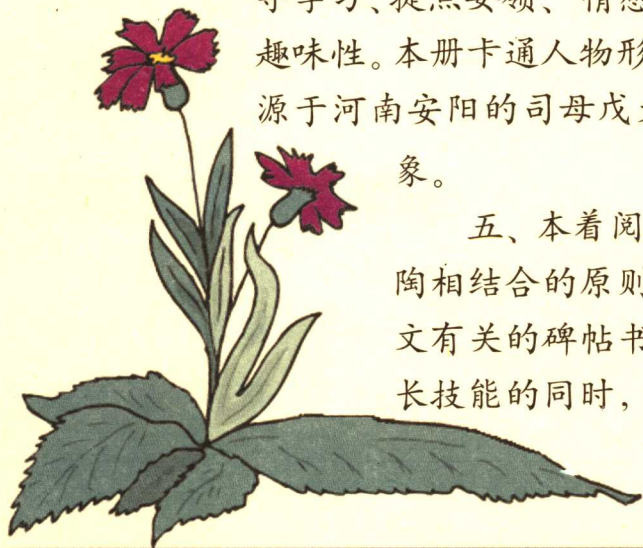 导学习、提点要领、情感
趣味性。本册卡通人物形
源于河南安阳的司母戊
象。
五、本着阅
陶相结合的原则
文有关的碑帖书
长技能的同时，